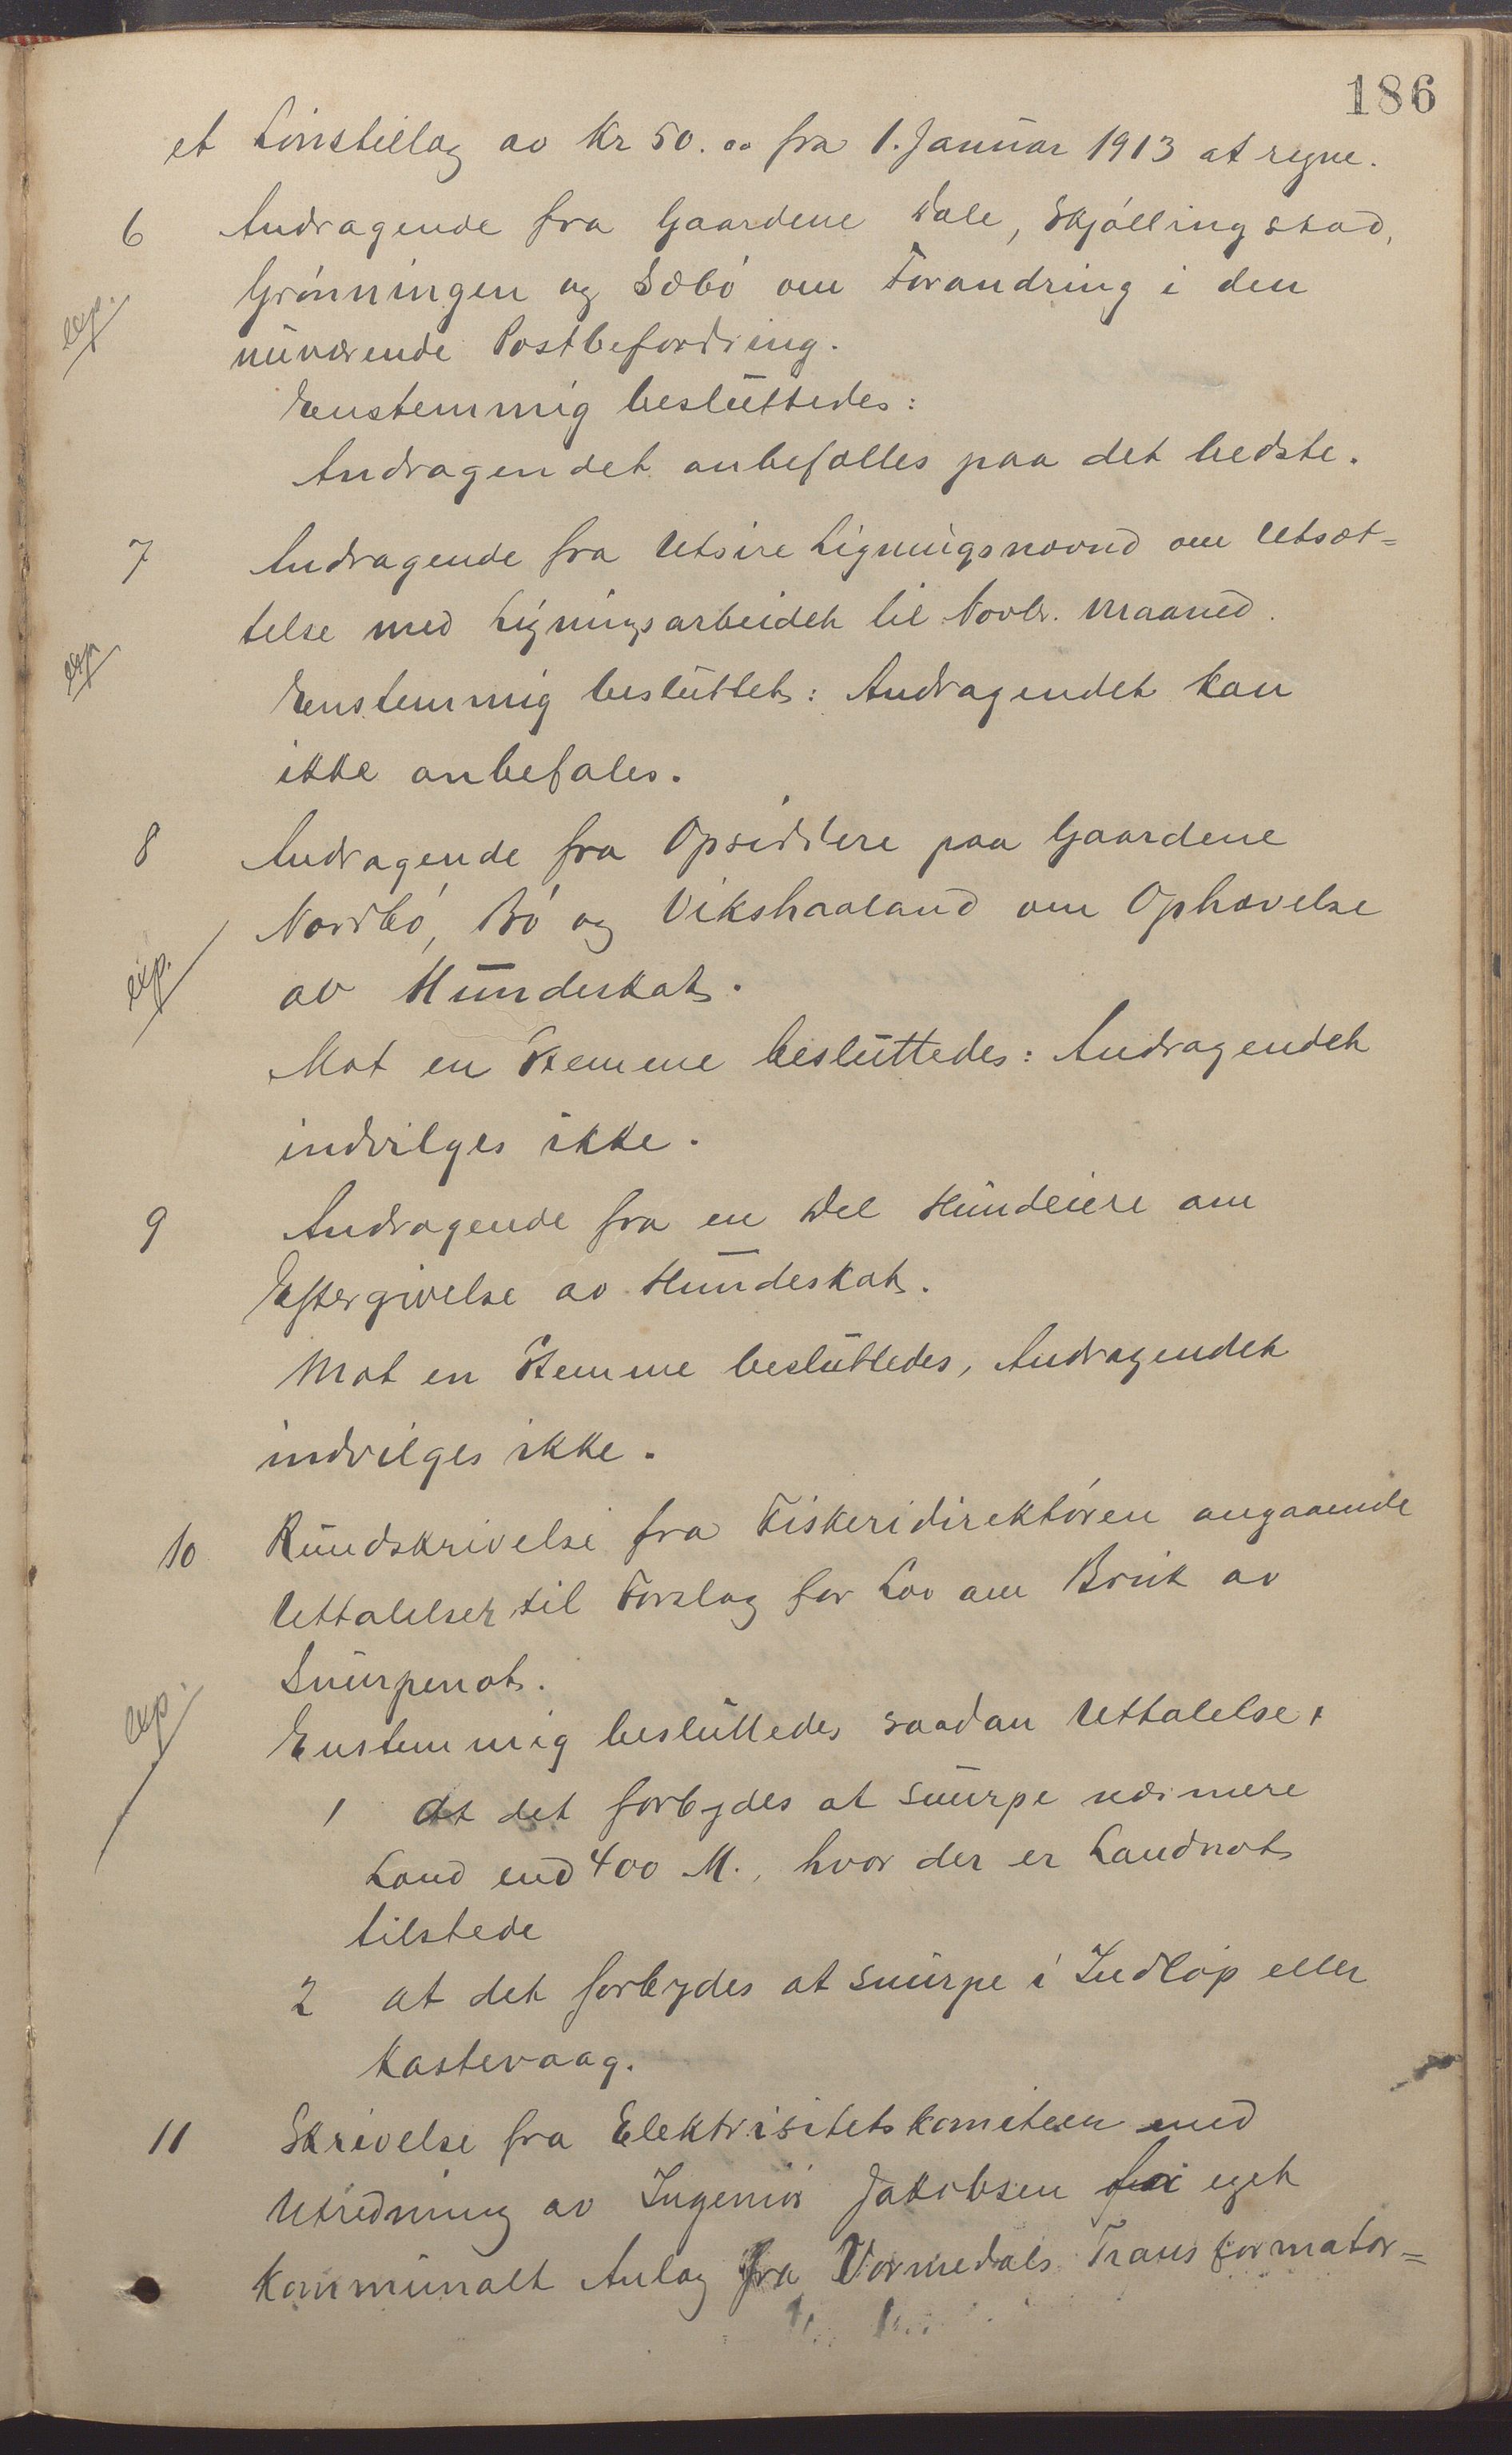 186
et Lönstillæg av Kr 50.00 fra 1. Januar 1913 at regne.
6 Andragende fra Gaardene Dale, Skjöllingstad,
Grönningen og Sæbö om Forandring i den
exp.
nuværende Postbefordring.
Enstemmig besluttedes:
Andragendet anbefalles paa det bedste.
7 Andragende fra Utsire Ligningsnævnd om Utsæt=
telse med Ligningsarbeidet til Novbr. Maaned.
exp
Enstemmig besluttet: Andragendet kan
ikke anbefales.
8 Andragende fra Opsiddere paa Gaardene
Nordbö, Bö og Vikshaaland om Ophævelse
exp.
av Hundeskat.
Mot en Stemme besluttedes: Andragendet
indvilges ikke.
9 Andragende fra en Del Hundeiere om
Eftergivelse av Hundeskat.
Mot en Stemme besluttedes, Andragendet
indvilges ikke.
10 Rundskrivelse fra Fiskeridirektören angaaende
Uttalelser til Forslag for Lov om Bruk av
Snurpenot.
exp.
Enstemmig besluttedes saadan Uttalelse,
1 At det forbydes at snurpe nærmere
Land end 400 M., hvor der er Landnot
tilstede
2 at det forbydes at snurpe i Indlöp eller
Kastevaag.
11 Skrivelse fra Elektrisitetskomiteen med
Utredning av Ingeniör Jakobsen for eget
Kommunalt Anlæg fra Vormedals Transformator=